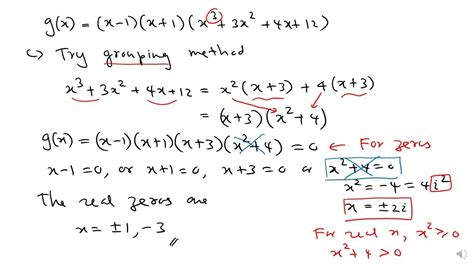 g(x) = (x-1)(x+1)(x³+3x²+4x+12)
c) Try grouping method
x³+3x²+4x+12 = x²(x+3)+4(x+3)
= (x+3)(x²+4)
g(x) = (x-1)(x+1)(x+3)(x²+4) = 0 ← For zeros
x-1=0, or x+1=0, x+3=0 or x²+4=0
x² = -4 = 4i²
x = ±2i
The real zeros are
x = ±1, -3
For real x, x² ≥ 0
x²+4 > 0